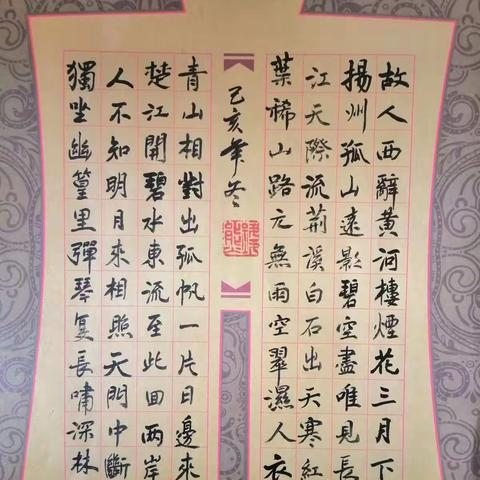 故人西辭黃河樓煙花三月下
揚州孤山遠影碧空盡唯見長
江天際流荊溪白石出天寒紅
葉稀山路元無雨空翠濕人衣
獨坐幽篁里彈琴复長嘯深林
人不知明月來相照天門中斷
楚江開碧水東流至此回兩岸
青山相對出孤帆一片日邊來
己亥年冬